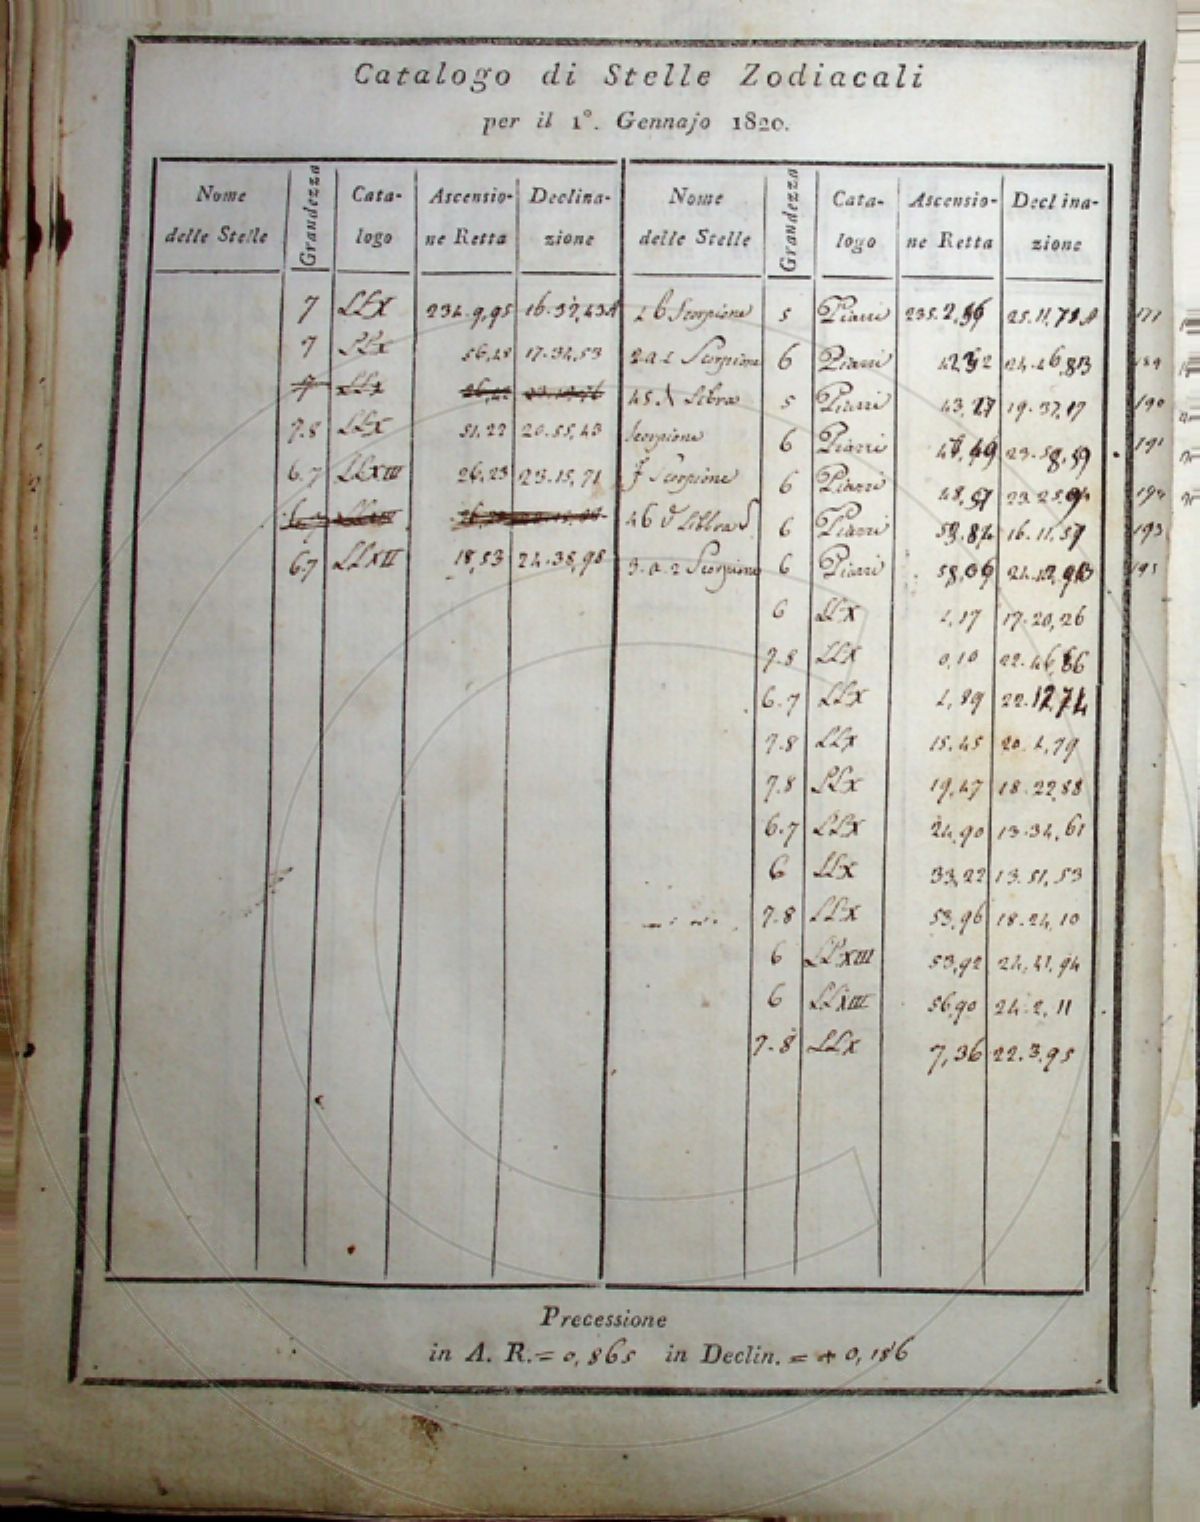 Catalogo di Stelle Zodiacali
per il 1°. Gennajo 1820.
Nome delle Stelle Grandezza Cata-logo Ascensio-ne Retta Declina-zione Nome delle Stelle Grandezza Cata-logo Ascensio-ne Retta Declina-zione
7 LLX 234.9,95 16.37,43A
7 LLX 56,48 17.34,53
7.8 LLX 51,22 20.55,43
6.7 LLXIII 26,23 23.15,71
6.7 LLXII 18,53 24.38,98
1 b Scorpione 5 Piazzi 235.2,56 25.11,78A 171
2 a 1 Scorpione 6 Piazzi 24.46,83
45 λ Libra 5 Piazzi 43,27 19.37,17 190
Scorpione 6 Piazzi 23.58,59 191
Scorpione 6 Piazzi 48,57
46 θ Libra 6 Piazzi 59,82 16.11,57 193
3.a.2 Scorpione 6 Piazzi 58,09 195
6 LLX 1,17 17.20,26
7.8 LLX 0,10 22.46,86
6.7 LLX 1,89 22.12,74
7.8 LLX 15,45 20.1,79
7.8 LLX 19,47 18.22,88
6.7 LLX 24,90 13.34,61
6 LLX 33,22 13.51,53
7.8 LLX 53,96 18.24,10
6 LLXIII 53,92 24.41,94
6 LLXIII 56,90 24.2,11
7.8 LLX 7,36 22.3,95
Precessione
in A. R.= 0,865 in Declin. = + 0,186